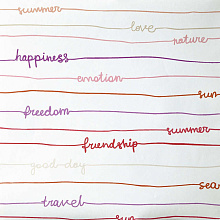 summer
love
nature
happiness
emotion
sun
freedom
summer
friendship
good day
sea
travel
sun